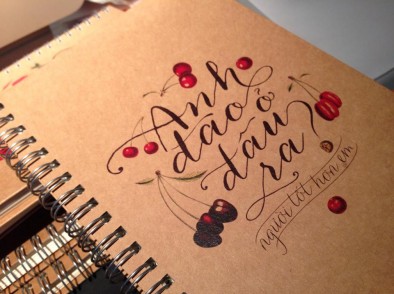 Anh
đào ở
đâu
ra?
người tốt hơn em